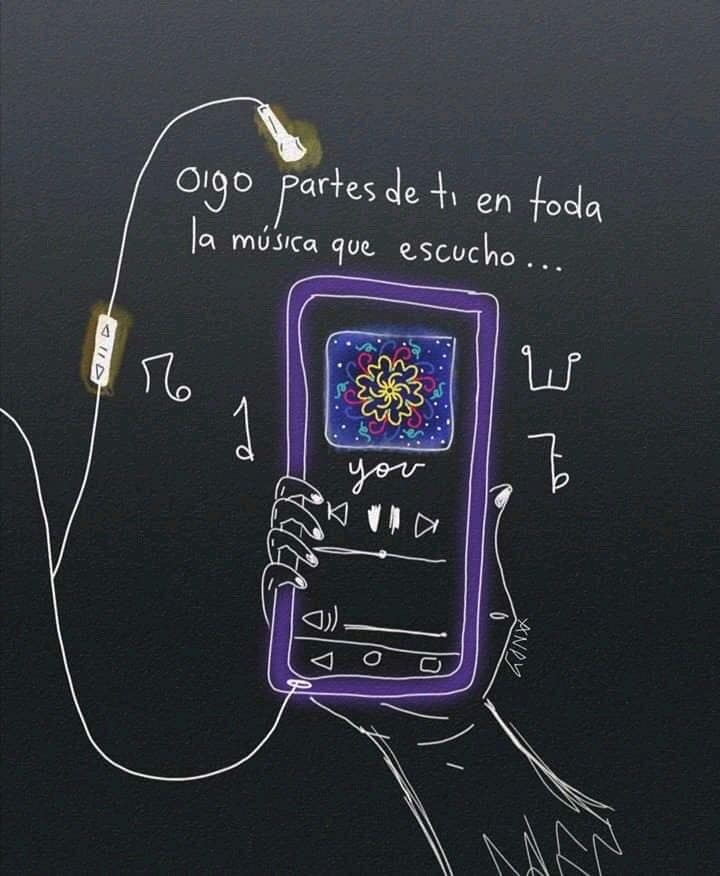 Oigo partes de ti en toda
la música que escucho...
you